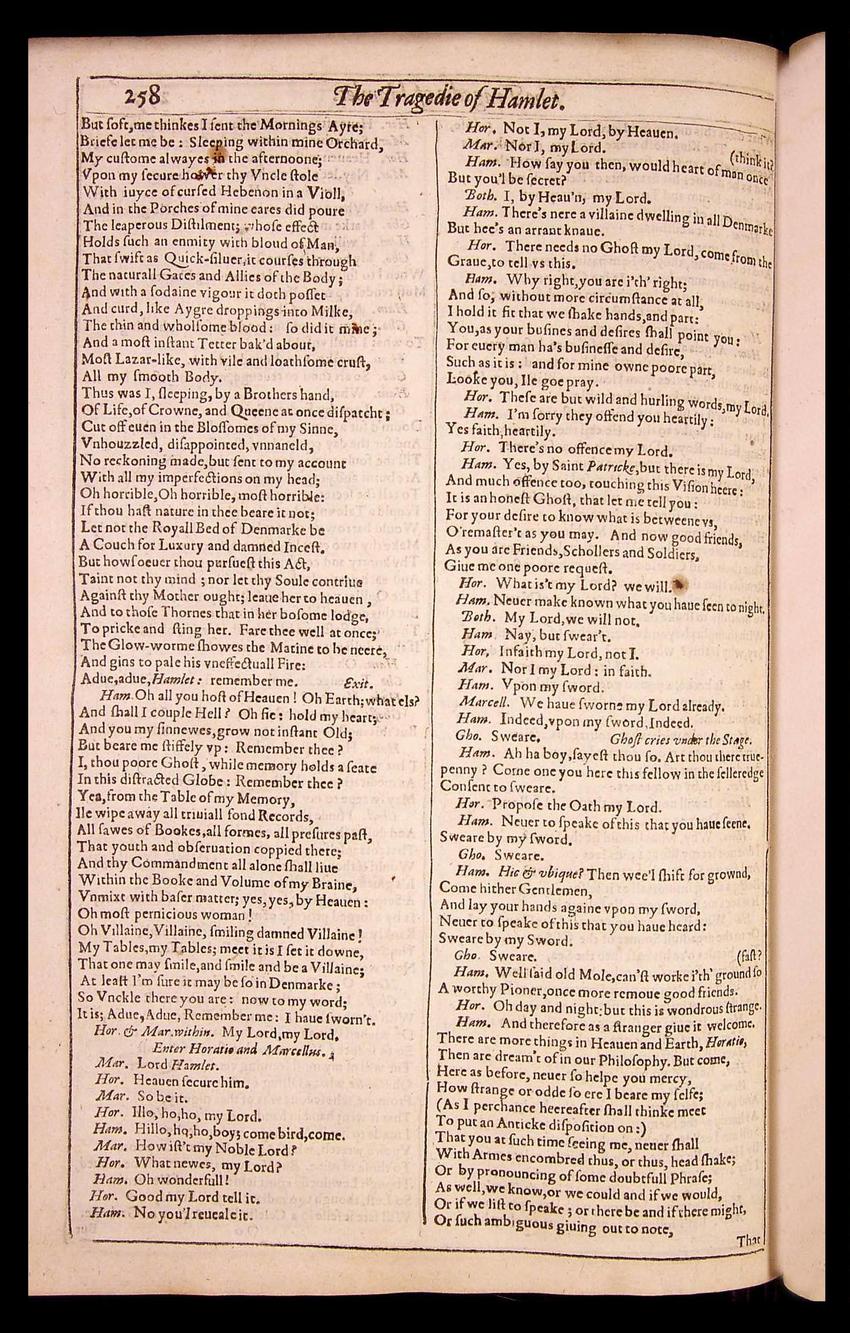 258
The Tragedie of Hamlet.
But soft, me thinkes I sent the Mornings Ayre;
Briefe let me be: Sleeping within mine Orchard,
My custome alwayes in the afternoone;
Vpon my secure hower thy Vncle stole
With iuyce of cursed Hebenon in a Violl,
And in the Porches of mine eares did poure
The leaperous Distilment; whose effect
Holds such an enmity with bloud of Man,
That swift as Quick-siluer, it courses through
The naturall Gates and Allies of the Body;
And with a sodaine vigour it doth posset
And curd, like Aygre droppings into Milke,
The thin and wholsome blood: so did it mine;
And a most instant Tetter bak'd about,
Most Lazar-like, with vile and loathsome crust,
All my smooth Body.
Thus was I, sleeping, by a Brothers hand,
Of Life, of Crowne, and Queene at once dispatcht;
Cut off euen in the Blossomes of my Sinne,
Vnhouzzled, disappointed, vnnaneld,
No reckoning made, but sent to my account
With all my imperfections on my head;
Oh horrible, Oh horrible, most horrible:
If thou hast nature in thee beare it not;
Let not the Royall Bed of Denmarke be
A Couch for Luxury and damned Incest.
But howsoeuer thou pursuest this Act,
Taint not thy mind; nor let thy Soule contriue
Against thy Mother ought; leaue her to heauen,
And to those Thornes that in her bosome lodge,
To pricke and sting her. Fare thee well at once;
The Glow-worme showes the Matine to be neere,
And gins to pale his vneffectuall Fire:
Adue, adue, Hamlet: remember me. Exit.
Ham. Oh all you host of Heauen! Oh Earth; what els?
And shall I couple Hell? Oh fie: hold my heart;
And you my sinnewes, grow not instant Old;
But beare me stiffely vp: Remember thee?
I, thou poore Ghost, while memory holds a seate
In this distracted Globe: Remember thee?
Yea, from the Table of my Memory,
Ile wipe away all triuiall fond Records,
All sawes of Bookes, all formes, all presures past,
That youth and obseruation coppied there;
And thy Commandment all alone shall liue
Within the Booke and Volume of my Braine,
Vnmixt with baser matter; yes, yes, by Heauen:
Oh most pernicious woman!
Oh Villaine, Villaine, smiling damned Villaine!
My Tables, my Tables; meet it is I set it downe,
That one may smile, and smile and be a Villaine;
At least I'm sure it may be so in Denmarke;
So Vnckle there you are: now to my word;
It is; Adue, Adue, Remember me: I haue sworn't.
Hor. & Mar. within. My Lord, my Lord.
Enter Horatio and Marcellus.
Mar. Lord Hamlet.
Hor. Heauen secure him.
Mar. So be it.
Hor. Illo, ho, ho, my Lord.
Ham. Hillo, ho, ho, boy; come bird, come.
Mar. How ist't my Noble Lord?
Hor. What newes, my Lord?
Ham. Oh wonderfull!
Hor. Good my Lord tell it.
Ham. No you'l reueale it.
Hor. Not I, my Lord, by Heauen.
Mar. Nor I, my Lord. (think it?
Ham. How say you then, would heart of man once
But you'l be secret?
Both. I, by Heau'n, my Lord.
Ham. There's nere a villaine dwelling in all Denmarke
But hee's an arrant knaue.
Hor. There needs no Ghost my Lord, come from the
Graue, to tell vs this.
Ham. Why right, you are i'th' right;
And so, without more circumstance at all,
I hold it fit that we shake hands, and part:
You, as your busines and desires shall point you:
For euery man ha's businesse and desire,
Such as it is: and for mine owne poore part,
Looke you, Ile goe pray.
Hor. These are but wild and hurling words, my Lord.
Ham. I'm sorry they offend you heartily:
Yes faith, heartily.
Hor. There's no offence my Lord.
Ham. Yes, by Saint Patricke, but there is my Lord,
And much offence too, touching this Vision heere:
It is an honest Ghost, that let me tell you:
For your desire to know what is betweene vs,
O'remaster't as you may. And now good friends,
As you are Friends, Schollers and Soldiers,
Giue me one poore request.
Hor. What is't my Lord? we will.
Ham. Neuer make known what you haue seen to night.
Both. My Lord, we will not.
Ham Nay, but swear't.
Hor. Infaith my Lord, not I.
Mar. Nor I my Lord: in faith.
Ham. Vpon my sword.
Marcell. We haue sworne my Lord already.
Ham. Indeed, vpon my sword, Indeed.
Gho. Sweare. Ghost cries vnder the Stage.
Ham. Ah ha boy, sayest thou so. Art thou there true-
penny? Come one you here this fellow in the selleredge
Consent to sweare.
Hor. Propose the Oath my Lord.
Ham. Neuer to speake of this that you haue seene.
Sweare by my sword.
Gho. Sweare.
Ham. Hic & vbique? Then wee'l shift for grownd,
Come hither Gentlemen,
And lay your hands againe vpon my sword,
Neuer to speake of this that you haue heard:
Sweare by my Sword.
Gho. Sweare. (fast?
Ham. Well said old Mole, can'st worke i'th' ground so
A worthy Pioner, once more remoue good friends.
Hor. Oh day and night: but this is wondrous strange.
Ham. And therefore as a stranger giue it welcome.
There are more things in Heauen and Earth, Horatio,
Then are dream't of in our Philosophy. But come,
Here as before, neuer so helpe you mercy,
How strange or odde so ere I beare my selfe;
(As I perchance heereafter shall thinke meet
To put an Anticke disposition on:)
That you at such time seeing me, neuer shall
With Armes encombred thus, or thus, head shake;
Or by pronouncing of some doubtfull Phrase;
As well, we know, or we could and if we would,
Or if we list to speake; or there be and if there might,
Or such ambiguous giuing out to note,
That